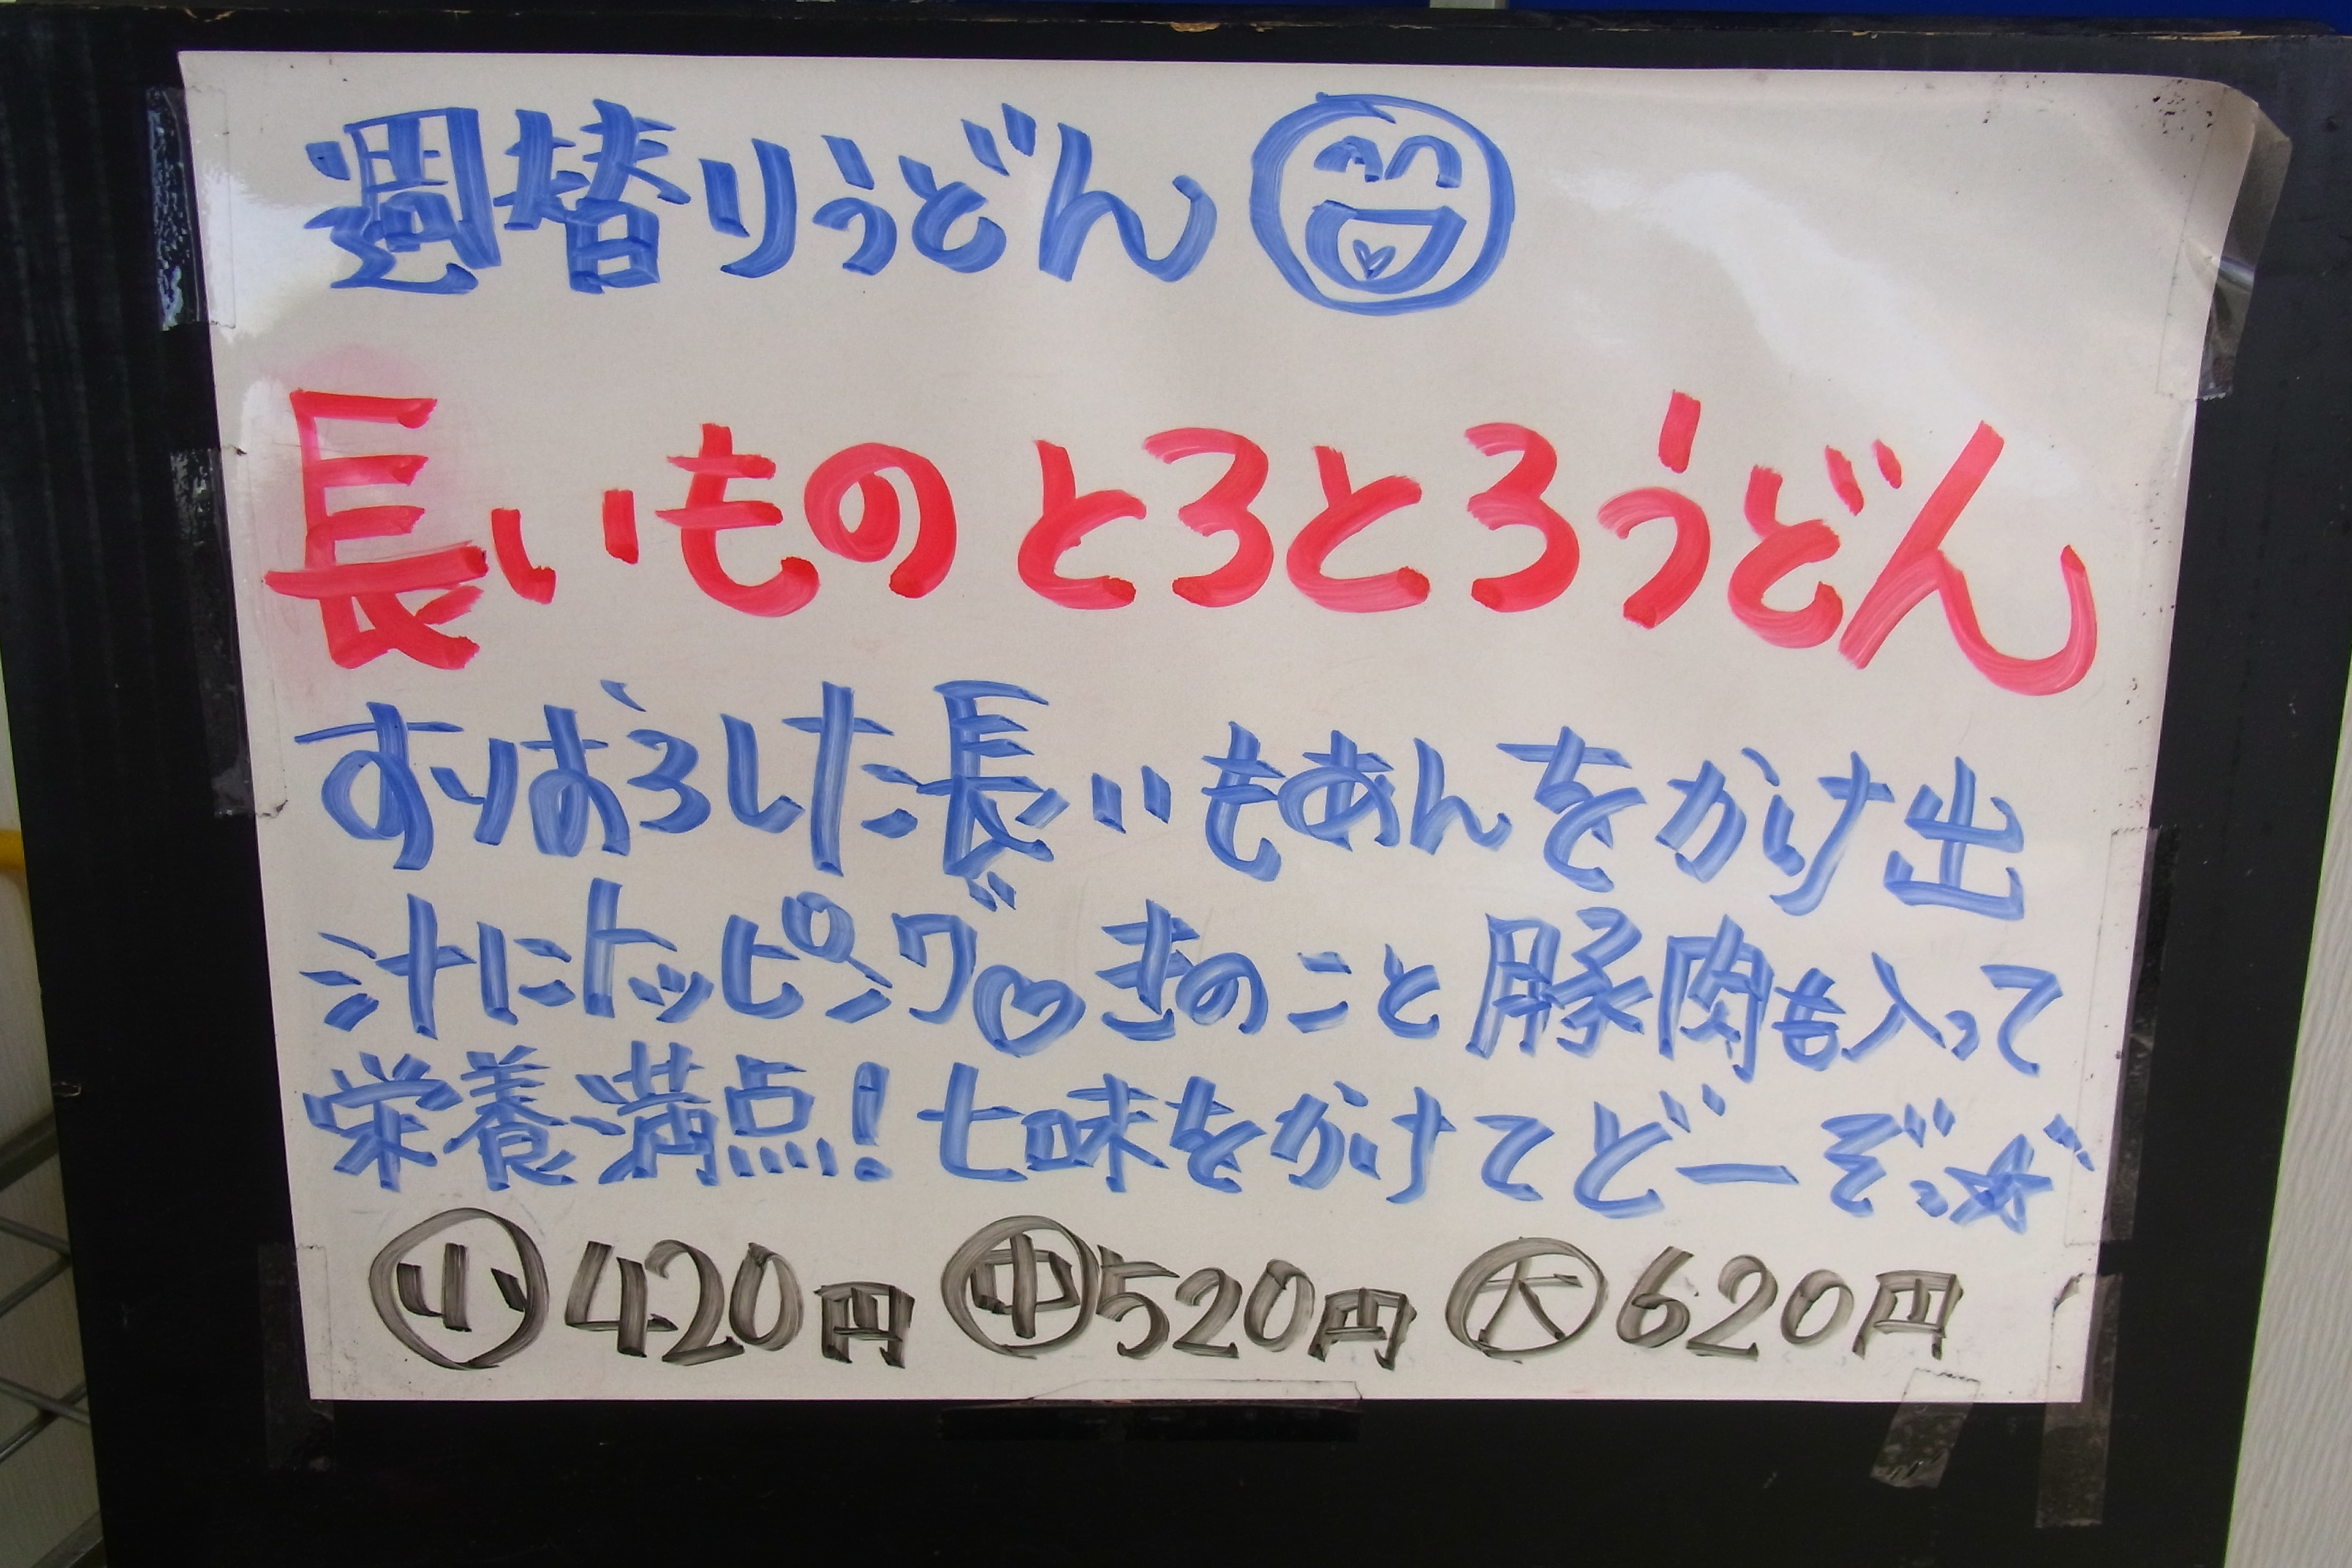 週替りうどん
長いものとろとろうどん
すりおろした長いもあんをかけ出
汁にトッピング♡きのこと豚肉も入って
栄養満点!七味をかけてどーぞっ☆
㊙小 420円 ㊥520円 大 620円